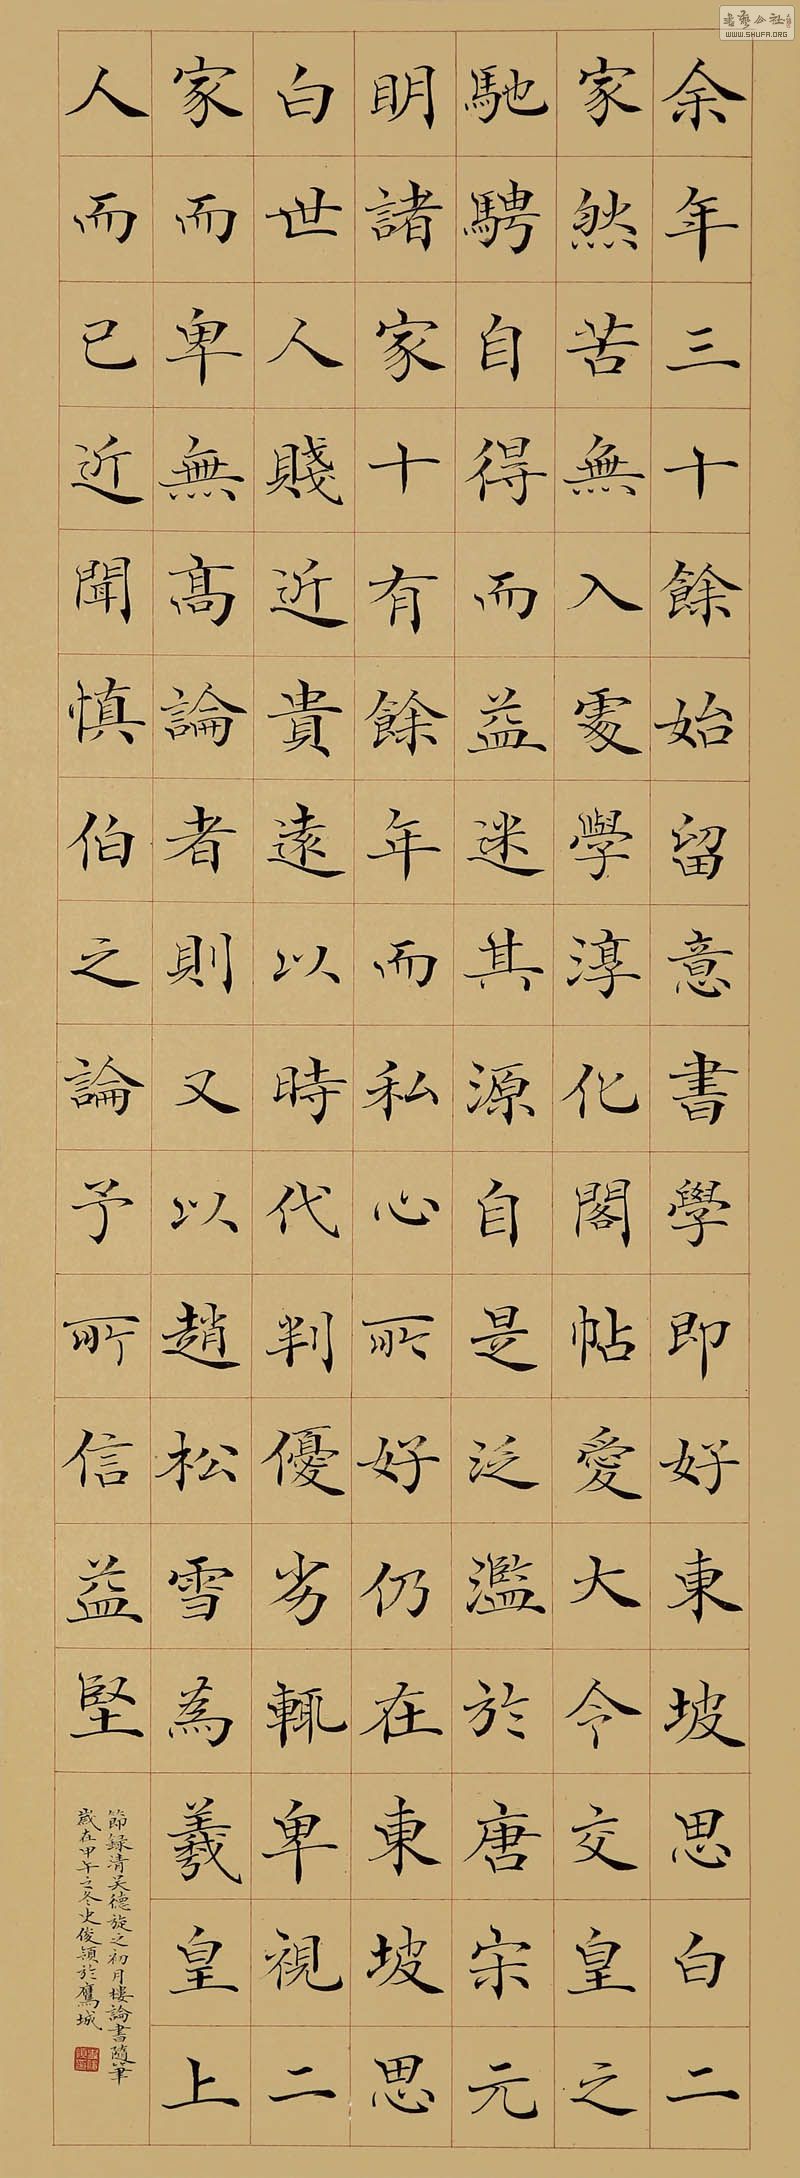 余年三十餘始留意書學即好東坡思白二
家然苦無入處學淳化閣帖愛大令交皇之
馳騁自得而益迷其源自是泛濫於唐宋元
明諸家十有餘年而私心所好仍在東坡思
白世人賤近貴遠以時代判優劣輒卑視二
家而卑無高論者則又以趙松雪為羲皇上
人而已近聞慎伯之論予所信益堅
節錄清吴德旋之初月樓論書隨筆
歲在甲午之冬史俊穎於鷹城
書藝公社
WWW.SHUFA.ORG